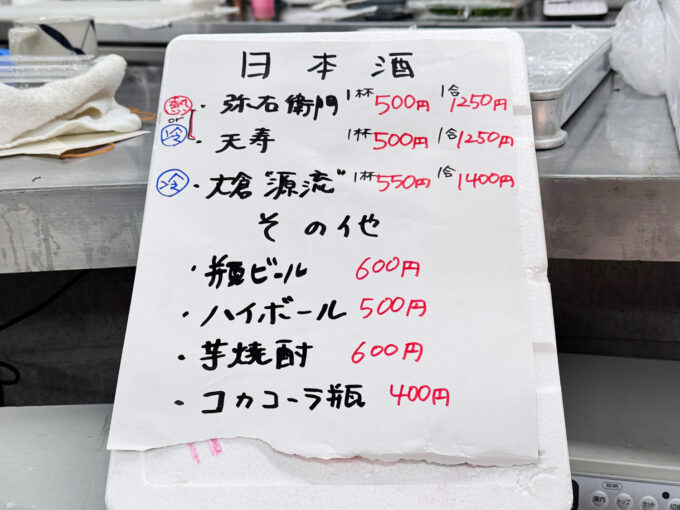 日本酒
熱 or 冷
・弥右衛門 1杯 500円 1合 1250円
・天寿 1杯 500円 1合 1250円
冷 ・大倉"源流" 1杯 550円 1合 1400円
その他
・瓶ビール 600円
・ハイボール 500円
・芋焼酎 600円
・コカコーラ瓶 400円
照明
庫内 トップ セット